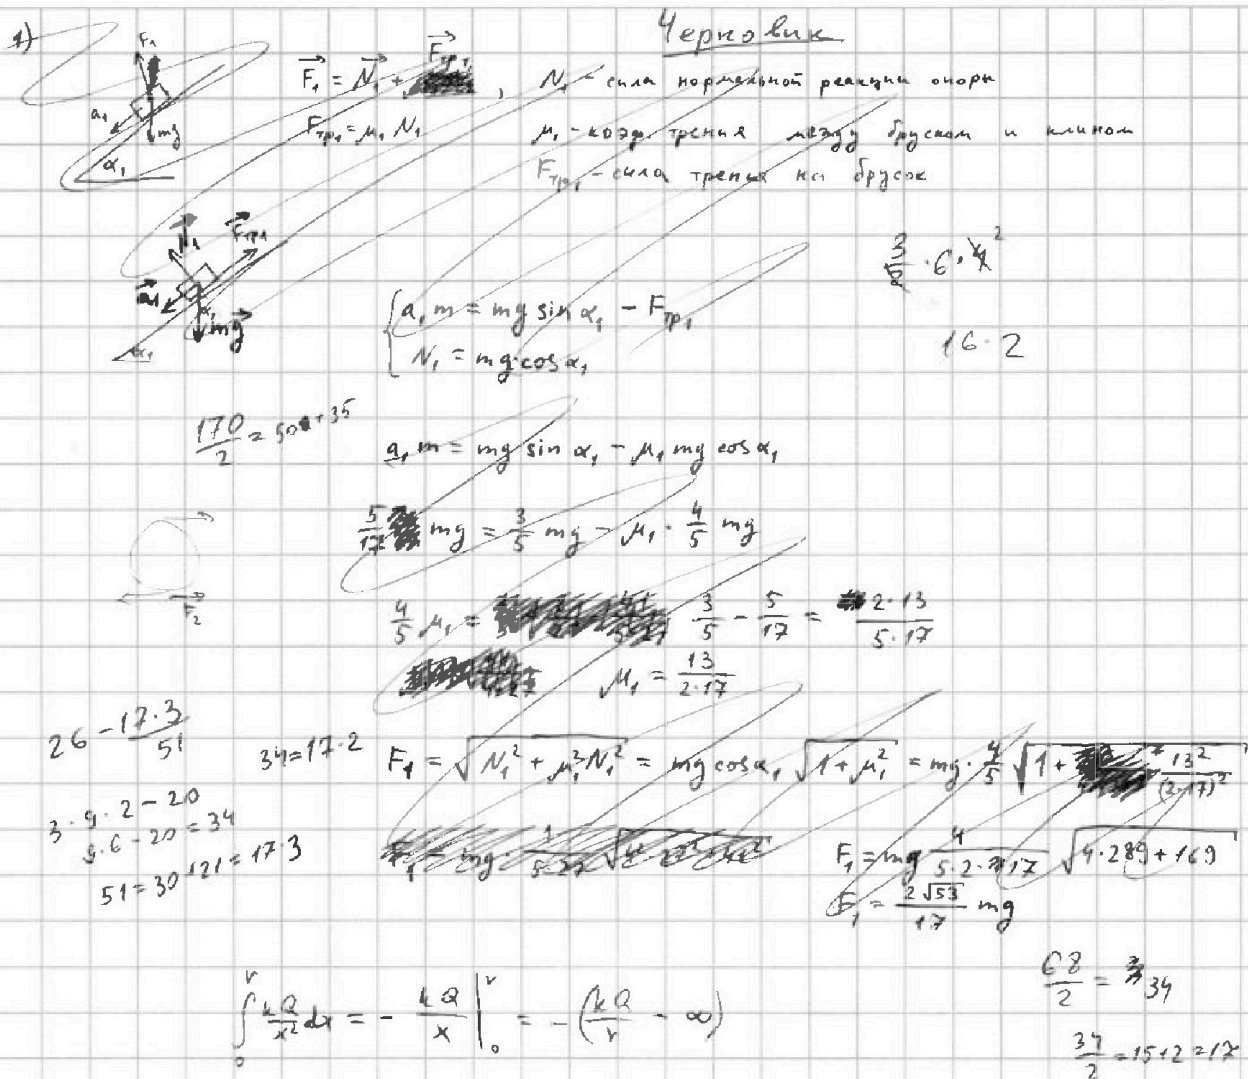 Черновик
1)
F₁
a₁
mg
α₁
F₁ = N₁ + Fтр₁ , N₁ - сила нормальной реакции опоры
Fтр₁ = μ₁ N₁ μ₁ - коэф. трения между бруском и клином
Fтр₁ - сила трения на брусок
N₁ Fтр₁
a₁
α₁
mg
α₁
3/5 · 6 · 4 2
16 · 2
a₁ m = mg sin α₁ - Fтр₁
N₁ = mg cos α₁
170/2 = 50 + 35
a₁ m = mg sin α₁ - μ₁ mg cos α₁
5/17 mg = 3/5 mg - μ₁ · 4/5 mg
F₂
4/5 μ₁ = 3/5 - 5/17 = 2·13/5·17
μ₁ = 13/2·17
26 - 17·3/51
34 = 17·2
F₁ = √(N₁² + μ₁²N₁²) = mg cos α₁ √(1 + μ₁²) = mg · 4/5 √(1 + 13²/(2·17)²)
3 · 9 · 2 - 20
9·6 - 20 = 34
51 = 30 + 21 = 17·3
F₁ = mg 4/5·2·17 √(4·289 + 169)
F₁ = 2√53/17 mg
68/2 = 34
∫₀^r kQ/x² dx = - kQ/x |₀^r = - (kQ/r - ∞)
34/2 = 15+2 = 17